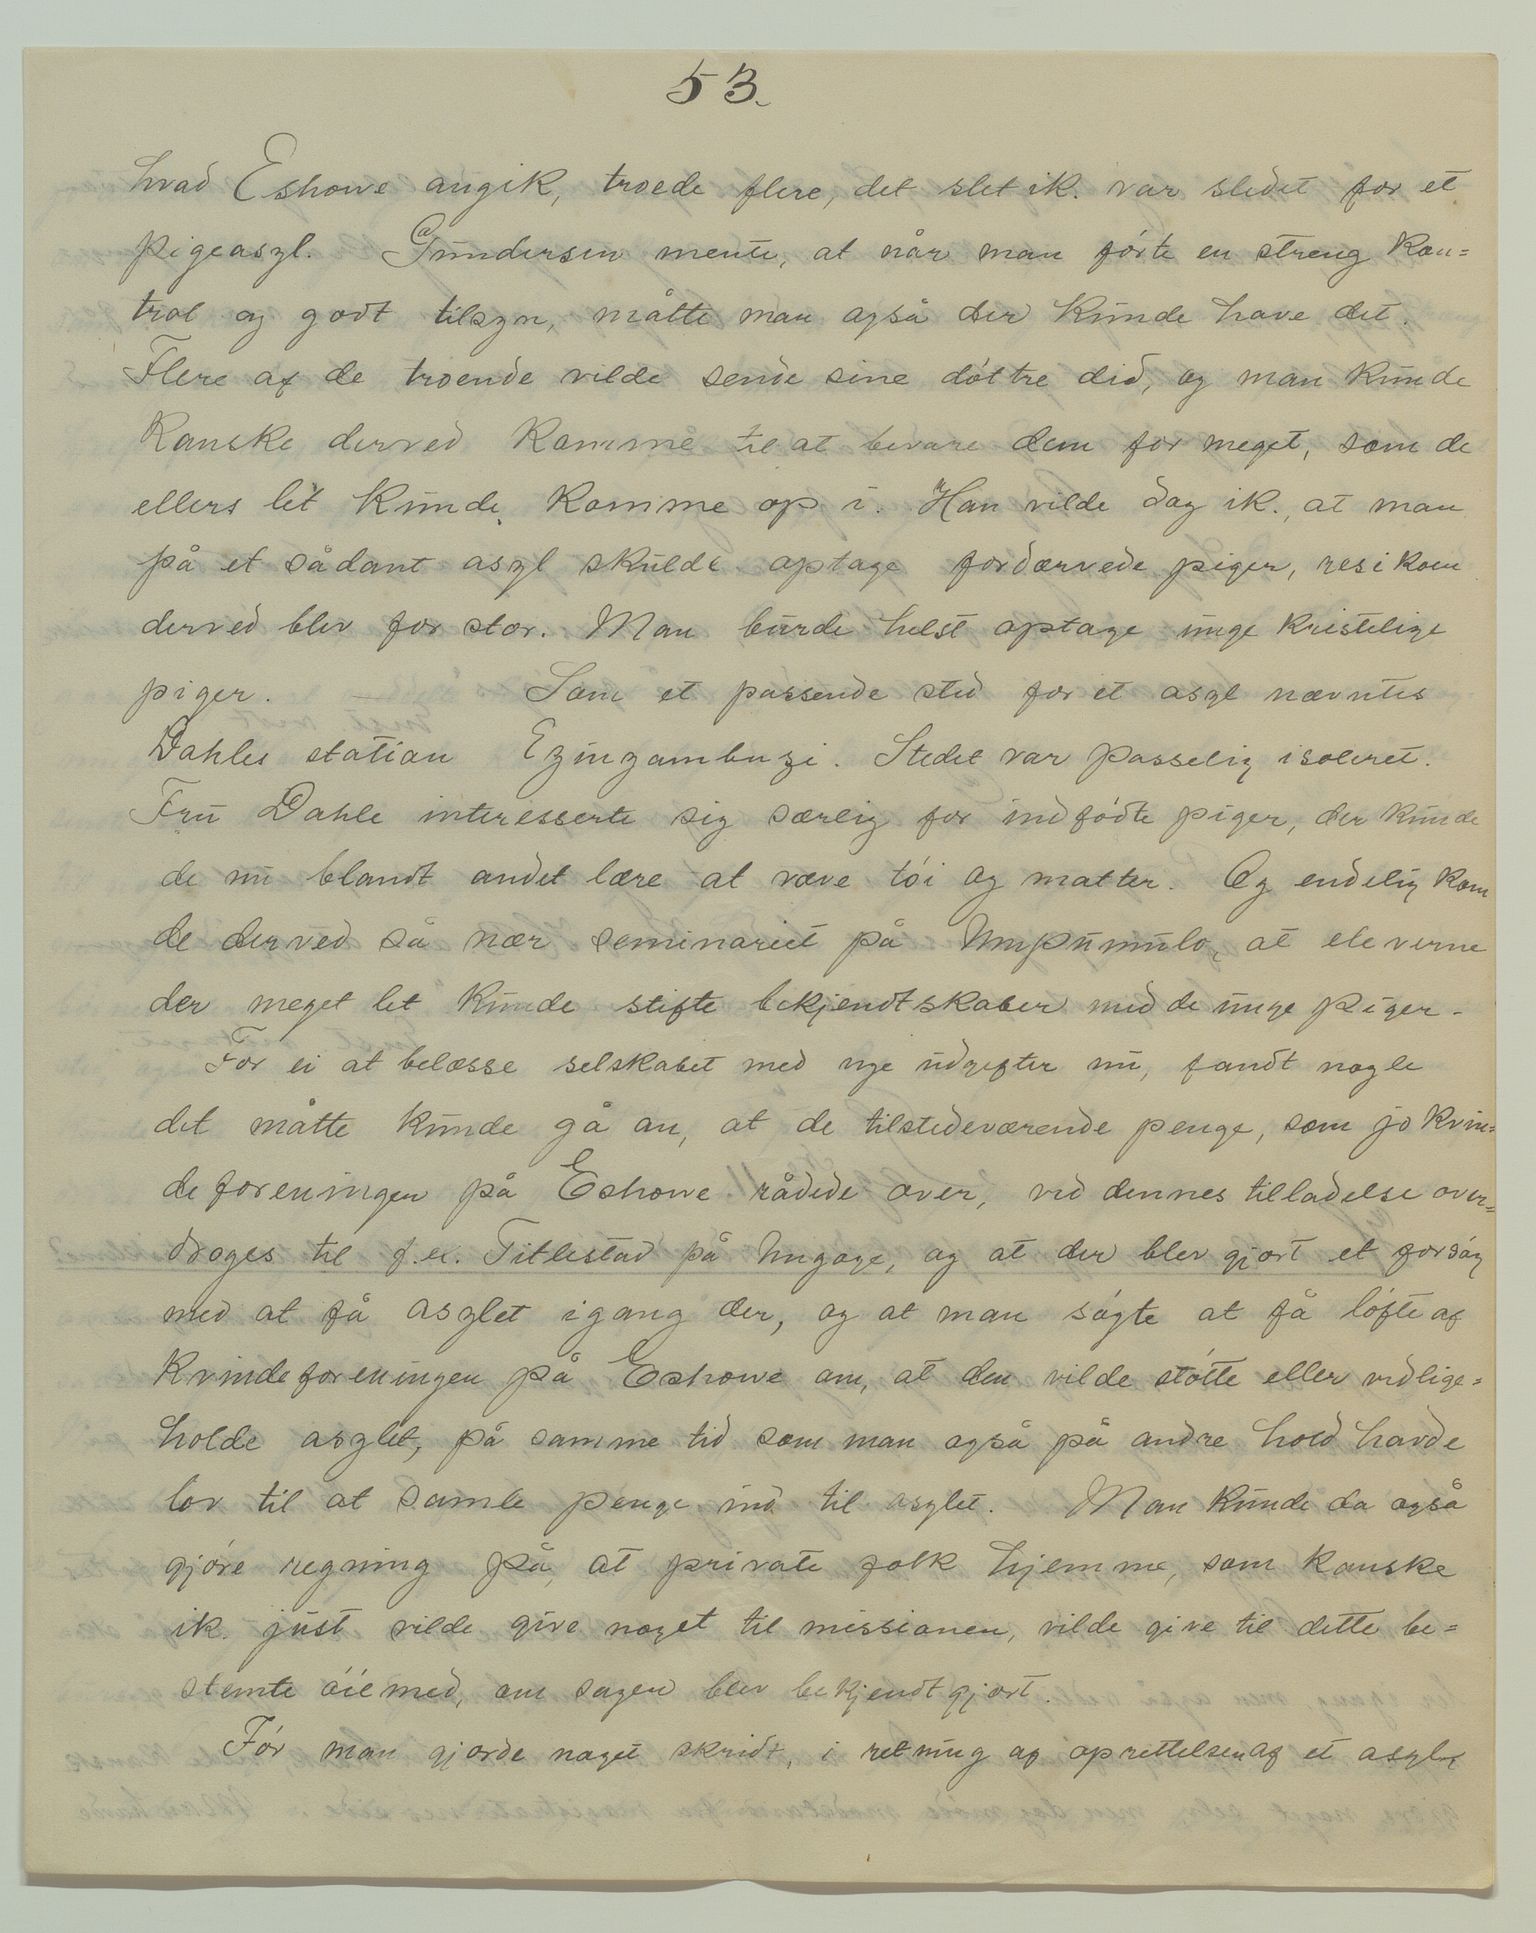 53.
hvad Eshowe angik, troede flere, det slet ik. var stedet for et
pigeasyl. Gundersen mente, at når man førte en streng kon=
trol og godt tilsyn, måtte man også der kunde have det.
Flere af de troende vilde sende sine døttre did, og man kunde
kanske derved komme til at bevare dem for meget, som de
ellers let kunde komme op i. Han vilde dog ik., at man
på et sådant asyl skulde optage fordærvede piger, resikoen
derved blev for stor. Man burde helst optage unge kristelige
piger. — Som et passende sted for et asyl nævntes
Dahles station Ezinzambuzi. Stedet var passelig isoleret.
Fru Dahle interesserte sig særlig for indfødte piger, der kunde
de nu blandt andet lære at væve tøi og matter. Og endelig kom
de derved så nær seminariet på Umpumulo, at eleverne
der meget let kunde stifte bekjendtskaber med de unge piger.
For ei at belæsse selskabet med nye udgifter nu, fandt nogle
det måtte kunde gå an, at de tilstedeværende penge, som jo kvin=
deforeningen på Eshowe rådede over, ved dennes tilladelse over=
droges til f.ex. Titlestad på Ungoye, og at der blev gjort et forsøg
med at få asylet igang der, og at man søgte at få løfte af
kvindeforeningen på Eshowe om, at den vilde støtte eller vedlige=
holde asylet, på samme tid som man også på andre hold havde
lov til at samle penge ind til asylet. Man kunde da også
gjøre regning på, at private folk hjemme, som kanske
ik. just vilde give noget til missionen, vilde give til dette be=
stemte øiemed, om sagen blev bekjendtgjort.
Før man gjorde noget skridt, i retning af oprettelsen af et asyl,